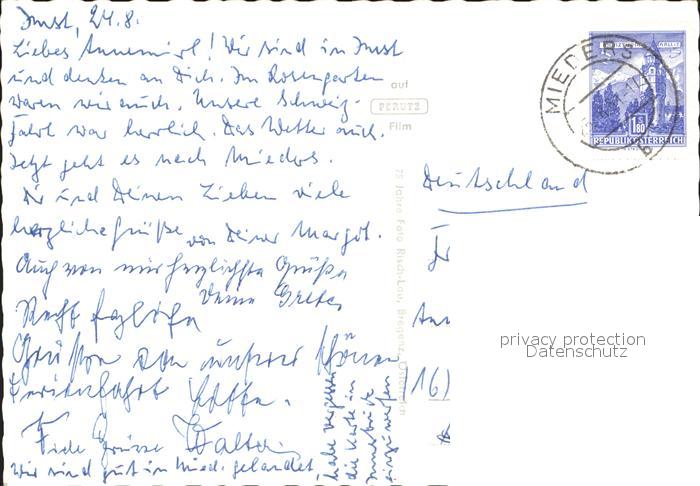 Imst, 24.8.
Liebes Annemirl! Wir sind in Imst
und denken an Dich. Im Rosengarten
waren wir auch. Unsere Schweiz-
fahrt war herrlich. Das Wetter auch.
Jetzt geht es nach Mieders.
Dir und Deinen Lieben viele
herzliche Grüße von Deiner Margit.
Auch von mir herzlichste Grüße
Deine Gretes
Recht fröhliche
Grüße von unserer schönen
Ferienfahrt
Viele Grüsse Walter
Wir sind gut in Mied. gelandet,
habe vergessen
die Karte in
Innsbruck
einzuwerfen
auf
PERUTZ
Film
75 Jahre Foto Risch-Lau, Bregenz, Österreich
MIEDERS
b
1.80
REPUBLIK ÖSTERREICH
Deutschland
(16)
privacy protection
Datenschutz